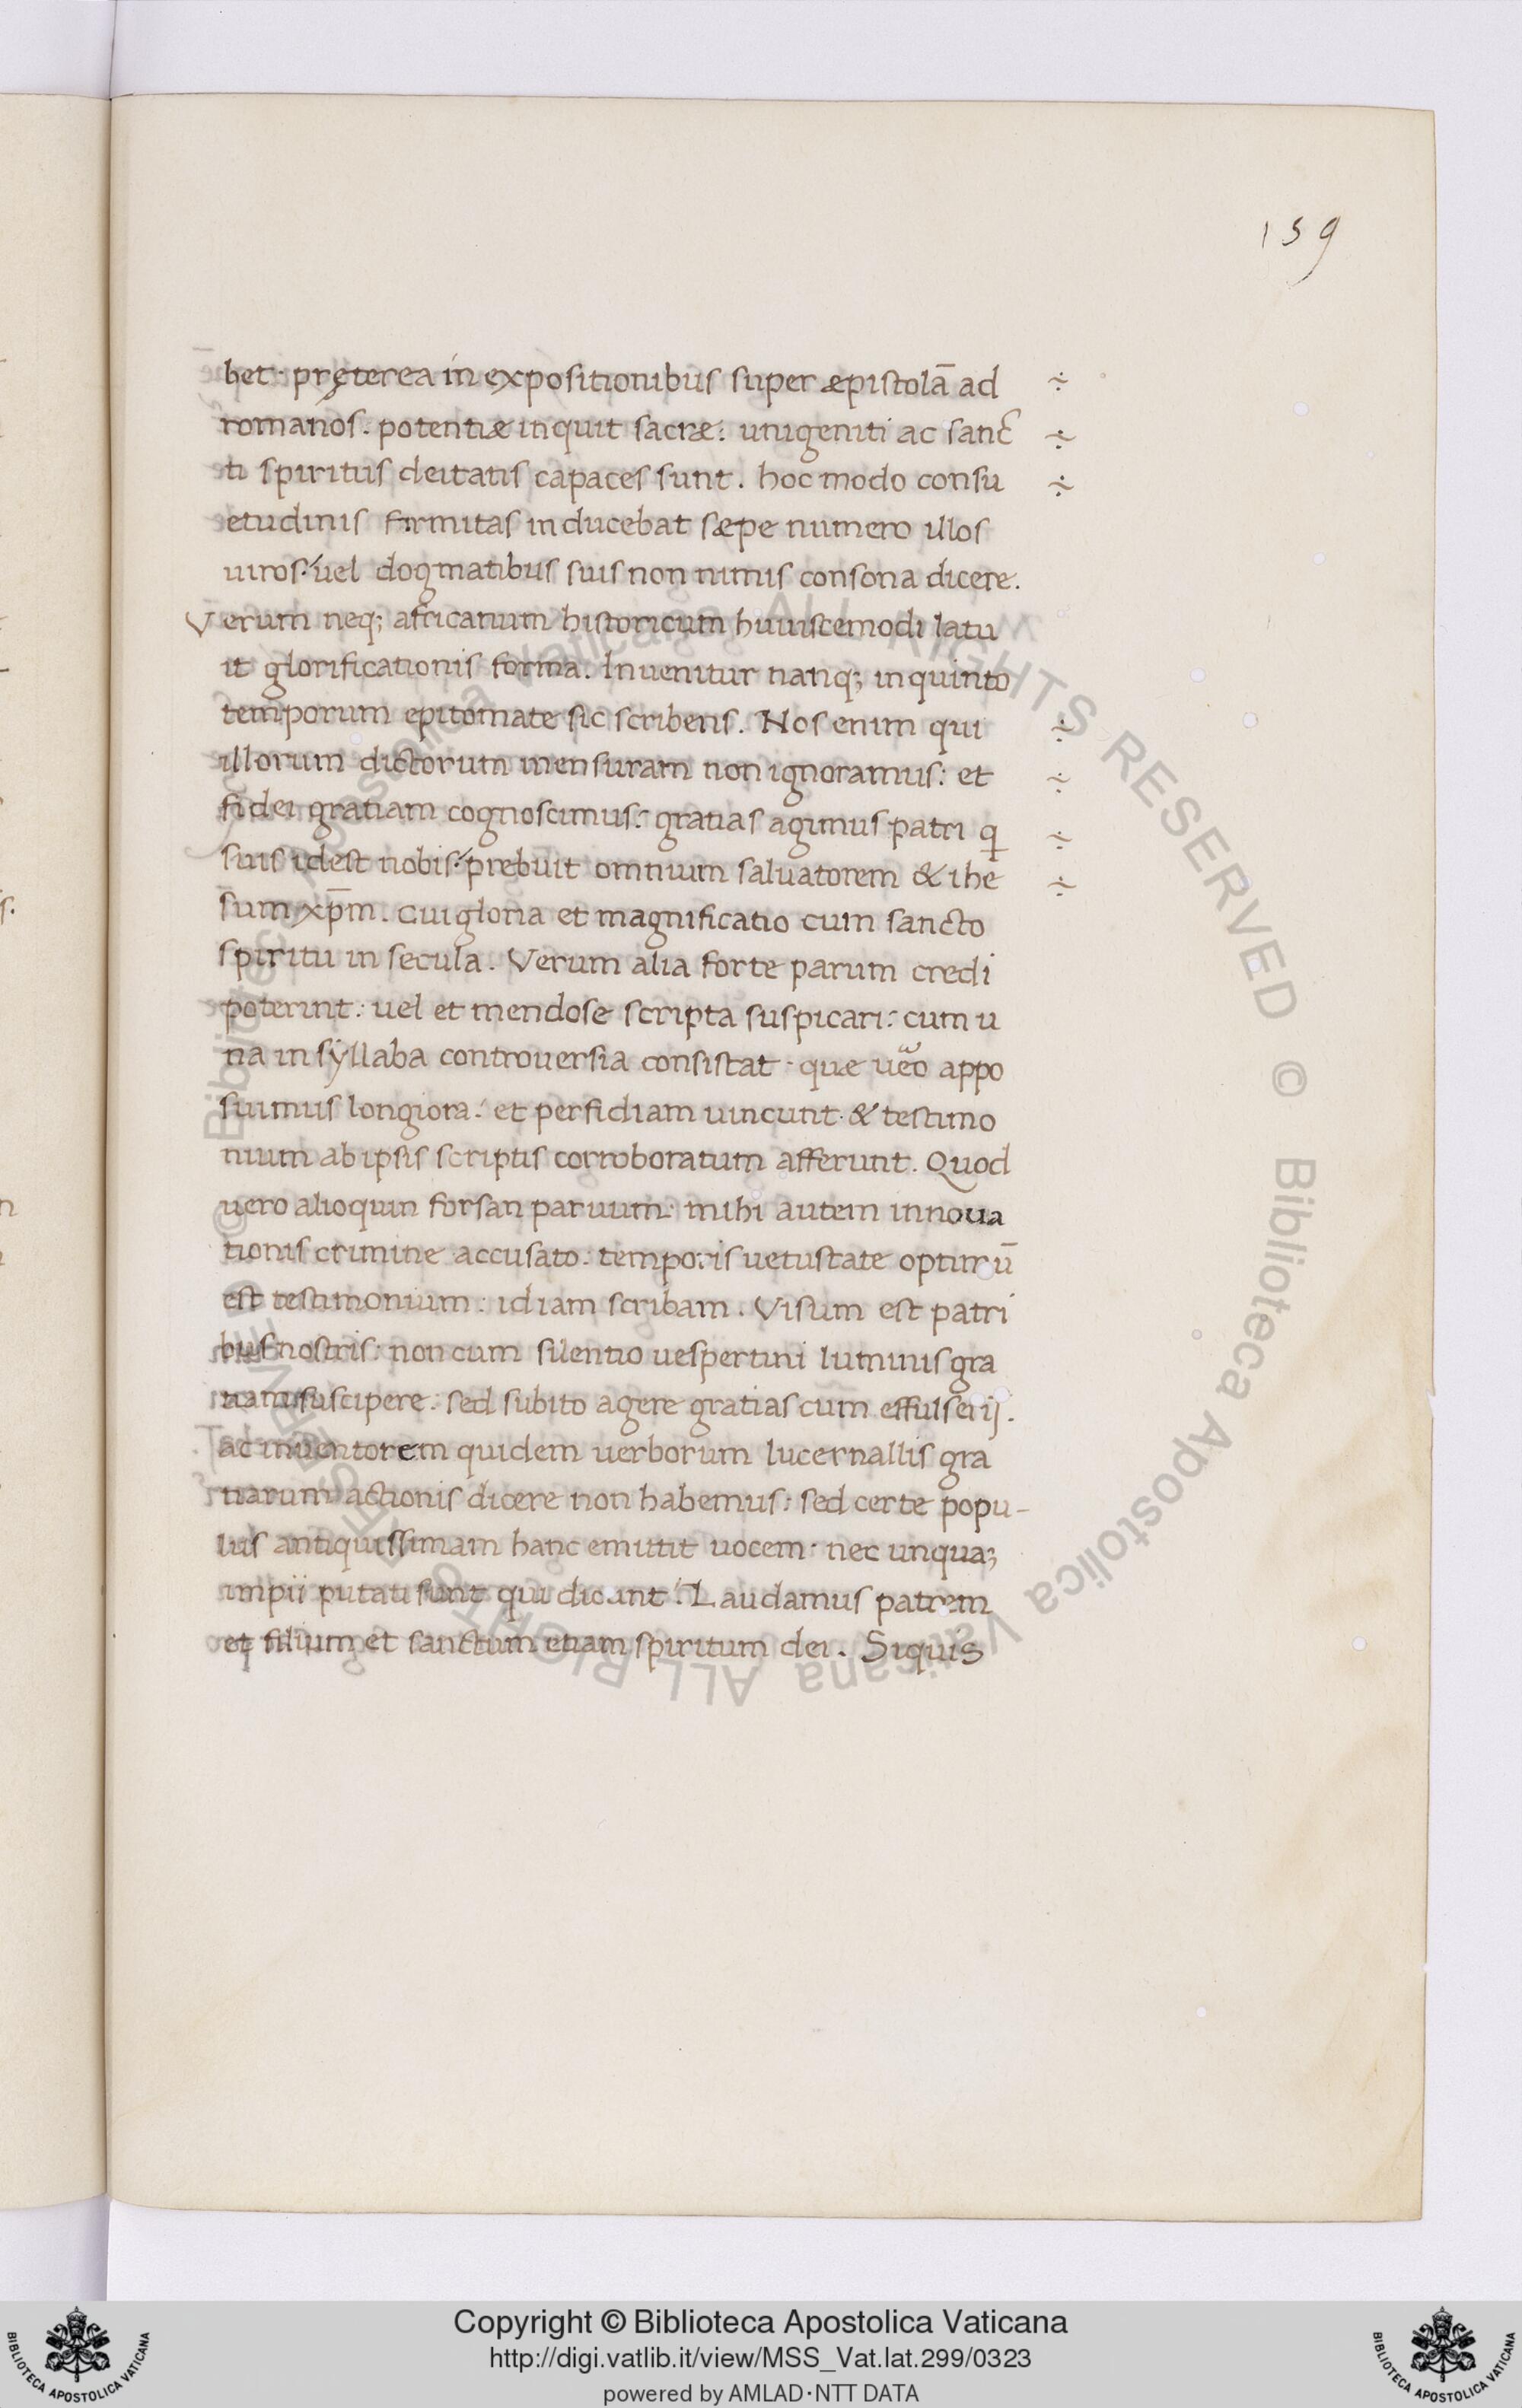 159
bet· pręterea in expositionibus super æpistolā ad ÷
romanos. potentiæ inquit sacræ: unigeniti ac sanc̄ ÷
ti spiritus deitatis capaces sunt. hoc modo consu ÷
etudinis firmitas inducebat sæpe numero illos
uiros: uel dogmatibus suis non nimis consona dicere.
Verum neq; africanum historicum huiuscemodi latu
it glorificationis forma. Inuenitur nanq; in quinto
temporum epitomate sic scribens. Nos enim qui ÷
illorum dictorum mensuram non ignoramus: et ÷
fidei gratiam cognoscimus: gratias agimus patri ꝗ ÷
suis idest nobis: prebuit omnium saluatorem & ihe ÷
sum xp̄m. Cui gloria et magnificatio cum sancto
spiritu in secula. Verum alia forte parum credi
poterint: uel et mendose scripta suspicari: cum u
na in sÿllaba controuersia consistat· que ue͛o appo
suimus longiora: et perfidiam uincunt· & testimo
nium ab ipsis scriptis corroboratum afferunt. Quod
uero alioquin forsan paruum: mihi autem innoua
tionis crimine accusato: temporis uetustate optimū
est testimonium: id iam scribam. Visum est patri
bus nostris: non cum silentio uespertini luminis gra
tiam suscipere: sed subito agere gratias cum effulserij.
ac inuentorem quidem uerborum lucernallis gra
tiarum actionis dicere non habemus: sed certe popu-
lus antiquissimam hanc emittit uocem: nec unqua;
impii putati sunt qui dicunt: Laudamus patrem
et filium et sanctum etiam spiritum dei. Siquis
© Biblioteca Apostolica Vaticana ALL RIGHTS RESERVED
© Biblioteca Apostolica Vaticana ALL RIGHTS RESERVED
Copyright © Biblioteca Apostolica Vaticana
http://digi.vatlib.it/view/MSS_Vat.lat.299/0323
powered by AMLAD·NTT DATA
BIBLIOTECA APOSTOLICA VATICANA
BIBLIOTECA APOSTOLICA VATICANA